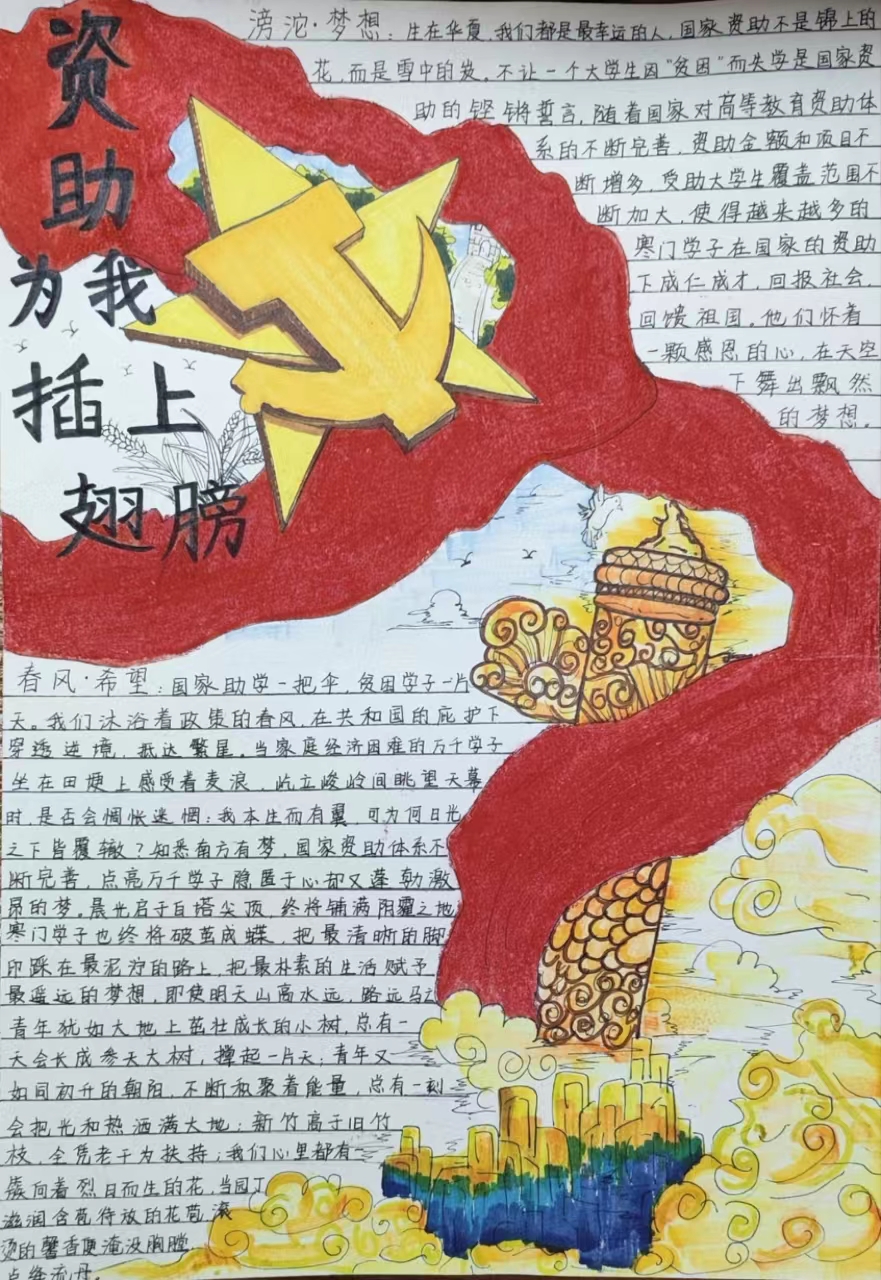 资
助
为我
插上
翅膀
滂沱·梦想：生在华夏，我们都是最幸运的人，国家资助不是锦上的
花，而是雪中的炭。不让一个大学生因“贫困”而失学是国家资
助的铿锵誓言，随着国家对高等教育资助体
系的不断完善，资助金额和项目不
断增多，受助大学生覆盖范围不
断加大，使得越来越多的
寒门学子在国家的资助
下成仁成才，回报社会，
回馈祖国。他们怀着
一颗感恩的心，在天空
下舞出飘然
的梦想。
春风·希望：国家助学一把伞，贫困学子一片
天。我们沐浴着政策的春风，在共和国的庇护下
穿透迷境，抵达繁星。当家庭经济困难的万千学子
坐在田埂上感受着麦浪，屹立峻岭间眺望天幕
时，是否会惆怅迷惘：我本生而有翼，可为何日光
之下皆覆辙？知悉南方有梦，国家资助体系不
断完善，点亮万千学子隐匿于心却又蓬勃激
昂的梦。晨光启于白塔尖顶，终将铺满阴霾之地
寒门学子也终将破茧成蝶，把最清晰的脚
印踩在最泥泞的路上，把最朴素的生活赋予
最遥远的梦想，即使明天山高水远，路远马
青年犹如大地上茁壮成长的小树，总有一
天会长成参天大树，撑起一片天；青年又
如同初升的朝阳，不断积聚着能量，总有一刻
会把光和热洒满大地；新竹高于旧竹
枝，全凭老干为扶持；我们心里都有一
簇向着烈日而生的花，当园丁
滋润含苞待放的花苞，滚
烫的馨香便淹没胸膛
点绛流丹。